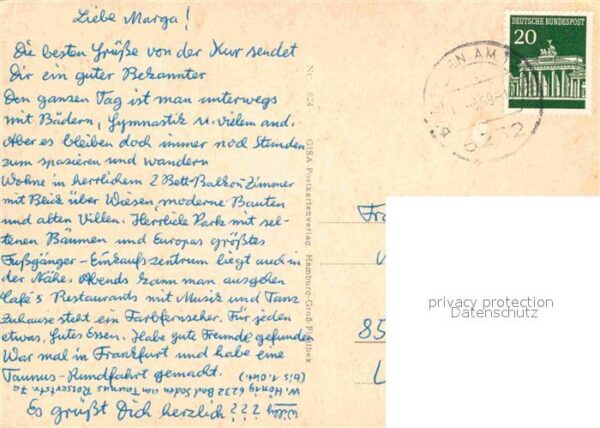 Liebe Marga!
Die besten Grüße von der Kur sendet
Dir ein guter Bekannter
Den ganzen Tag ist man unterwegs
mit Bädern, Gymnastik u. vielem and.
Aber es bleiben doch immer noch Stunden
zum spazieren und wandern
Wohne in herrlichem 2 Bett-Balkon-Zimmer
mit Blick über Wiesen, moderne Bauten
und alten Villen. Herrliche Park mit sel-
tenen Bäumen und Europas größtes
Fußgänger-Einkaufszentrum liegt auch in
der Nähe. Abends kann man ausgehen
Café's Restaurants mit Musik und Tanz
Zuhause steht ein Farbfernseher. Für jeden
etwas. Gutes Essen. Habe gute Freunde gefunden
War mal in Frankfurt und habe eine
Taunus-Rundfahrt gemacht. (bis 1. Okt.)
W. Hönig 6232 Bad Soden am Taunus Rossertstr. 7a
Es grüßt Dich herzlich ??? Willy
Nr. 624
GISA Postkartenverlag Hamburg-Groß-Flottbek
DEUTSCHE BUNDESPOST
20
EN AM
6232
Fra
85
privacy protection
Datenschutz